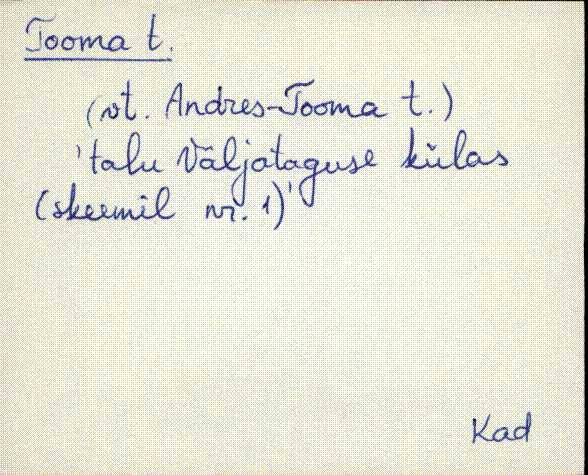 Tooma t.
(vt. Andres-Tooma t.)
'talu Väljataguse külas
(skeemil nr. 1)'
Kad